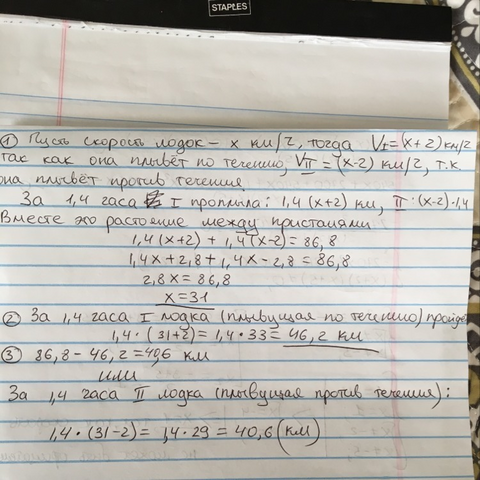 STAPLES
① Пусть скорость лодок – x км/ч, тогда V_I = (x+2) км/ч
так как она плывёт по течению, V_II = (x-2) км/ч, т.к.
она плывёт против течения.
За 1,4 часа I проплыла: 1,4(x+2) км, II: (x-2)·1,4
Вместе это растояние между пристанями
1,4(x+2) + 1,4(x-2) = 86,8
1,4x + 2,8 + 1,4x - 2,8 = 86,8
2,8x = 86,8
x = 31
② За 1,4 часа I лодка (плывущая по течению) пройдё
1,4 · (31+2) = 1,4 · 33 = 46,2 км
③ 86,8 - 46,2 = 40,6 км
или
За 1,4 часа II лодка (плывущая против течения):
1,4 · (31-2) = 1,4 · 29 = 40,6 (км)